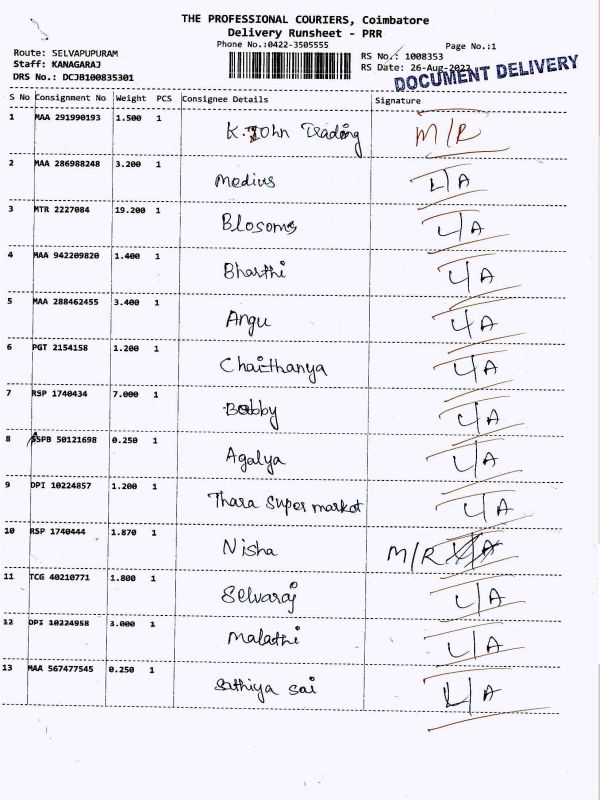 THE PROFESSIONAL COURIERS, Coimbatore
Delivery Runsheet - PRR
Phone No.:0422-3505555
Page No.:1
Route: SELVAPUPURAM
Staff: KANAGARAJ
DRS No.: DCJB100835301
RS No.: 1008353
RS Date: 26-Aug-2023
DOCUMENT DELIVERY
S No Consignment No Weight PCS Consignee Details Signature
1 MAA 291990193 1.500 1 K. John Trading M/R
2 MAA 286988248 3.200 1 Medius L/A
3 MTR 2227084 19.200 1 Blosoms L/A
4 MAA 942209820 1.400 1 Bharthi L/A
5 MAA 288462455 3.400 1 Angu L/A
6 PGT 2154158 1.200 1 Chaithanya L/A
7 RSP 1740434 7.000 1 Bobby L/A
8 SSPB 50121698 0.250 1 Agalya L/A
9 DPI 10224857 1.200 1 Thara Super market L/A
10 RSP 1740444 1.870 1 Nisha M/R L/A
11 TCG 40210771 1.800 1 Selvaraj L/A
12 DPI 10224958 3.000 1 Malathi L/A
13 MAA 567477545 0.250 1 Sathiya sai L/A